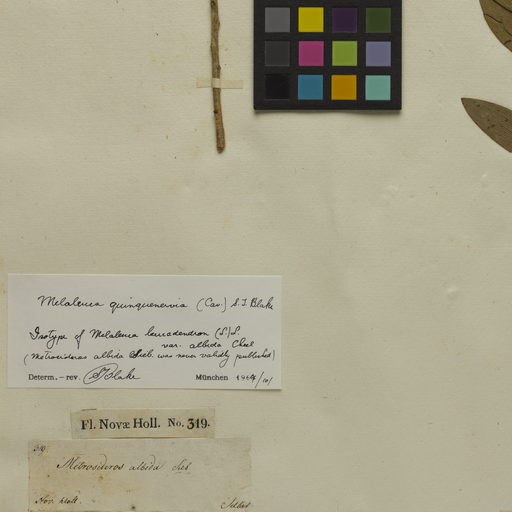 Melaleuca quinquenervia (Cav.) S.T. Blake
Isotype of Melaleuca leucadendron (L.) L.
var. albida Cheel
(Metrosideros albida Sieb. was never validly published)
Determ. – rev. S T Blake München 1964/10/
Fl. Novæ Holl. No. 319.
319
Metrosideros albida Sieb
Nov. Holl.